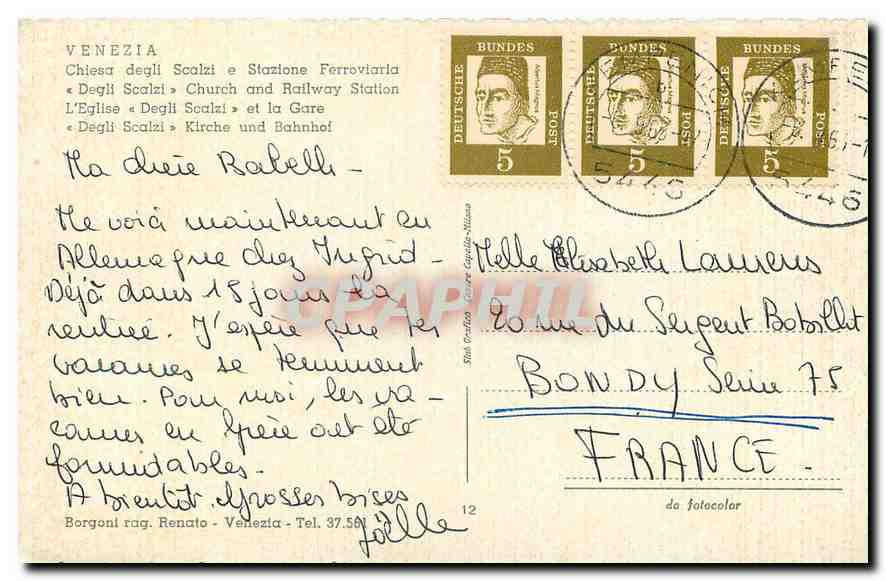 VENEZIA
Chiesa degli Scalzi e Stazione Ferroviaria
« Degli Scalzi » Church and Railway Station
L'Eglise « Degli Scalzi » et la Gare
« Degli Scalzi » Kirche und Bahnhof
Ma chère Babelle -
Me voici maintenant en
Allemagne chez Ingrid -
Déjà dans 15 jours la
rentrée. J'espère que tes
vacances se terminent
bien. Pour moi, les va-
cances en Grèce ont été
formidables.
A bientôt. Grosses bises
Joëlle
Borgoni rag. Renato - Venezia - Tel. 37.561
12
Stab Grafico Cesare Capello - Milano
DEUTSCHE BUNDES POST
Albertus Magnus
5
DEUTSCHE BUNDES POST
5
DEUTSCHE BUNDES POST
5
5446
5446
Melle Elisabeth Laurens
20 rue du Sergent Bobillot
BONDY Seine 75
FRANCE -
da fotocolor
CPAPHIL